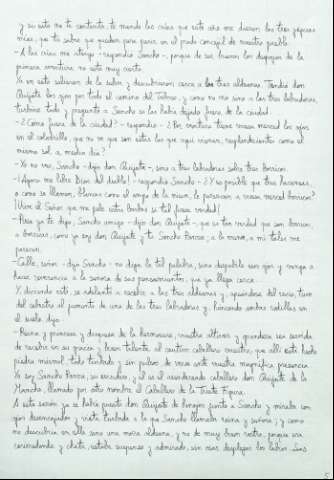 y si esto no te contenta, te mando las crías que este año me dieron las tres yeguas
mías, que tú sabes que quedan para parir en el prado concejil de nuestro pueblo.
-A las crías me atengo -respondió Sancho-, porque de ser buenos los despojos de la
primera aventura no está muy cierto.
Ya en esto salieron de la selva y descubrieron cerca a las tres aldeanas. Tendió don
Quijote los ojos por todo el camino del Toboso, y como no vio sino a las tres labradoras,
turbóse todo y preguntó a Sancho si las había dejado fuera de la ciudad.
-¿Cómo fuera de la ciudad? -respondió-. ¿Por ventura tiene vuesa merced los ojos
en el colodrillo, que no ve que son éstas las que aquí vienen, resplandecientes como el
mismo sol a medio día?
-Yo no veo, Sancho -dijo don Quijote-, sino a tres labradoras sobre tres borricos.
-¡Agora me libre Dios del diablo! -respondió Sancho-. ¿Y es posible que tres hacaneas,
o como se llaman, blancas como el ampo de la nieve, le parezcan a vuesa merced borricos?
¡Vive el Señor que me pele estas barbas si tal fuese verdad!
-Pues yo te digo, Sancho amigo -dijo don Quijote-, que es tan verdad que son borricos,
o borricas, como yo soy don Quijote y tú Sancho Panza; a lo menos, a mí tales me
parecen.
-Calle, señor -dijo Sancho-, no diga la tal palabra, sino despabile esos ojos y venga a
hacer reverencia a la señora de sus pensamientos, que ya llega cerca.
Y diciendo esto, se adelantó a recebir a las tres aldeanas y, apeándose del rucio, tuvo
del cabestro al jumento de una de las tres labradoras y, hincando ambas rodillas en
el suelo, dijo:
-Reina y princesa y duquesa de la hermosura, vuestra altivez y grandeza sea servida
de recebir en su gracia y buen talente al cautivo caballero vuestro, que allí está hecho
piedra mármol, todo turbado y sin pulsos de verse ante vuestra magnífica presencia.
Yo soy Sancho Panza, su escudero, y él es el asendereado caballero don Quijote de la
Mancha, llamado por otro nombre el Caballero de la Triste Figura.
A esta sazón ya se había puesto don Quijote de hinojos junto a Sancho y miraba con
ojos desencajados y vista turbada a la que Sancho llamaba reina y señora; y como
no descubría en ella sino una moza aldeana, y no de muy buen rostro, porque era
carirredonda y chata, estaba suspenso y admirado, sin osar desplegar los labios. Las